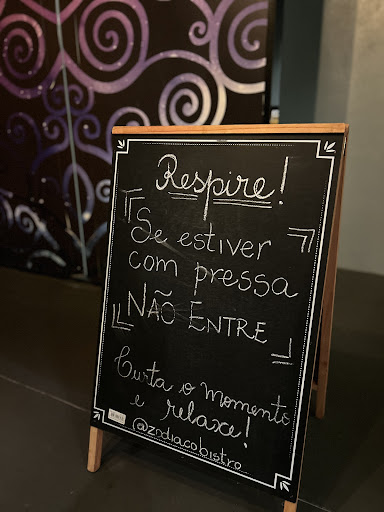 Respire!
Se estiver
com pressa
NÃO ENTRE
Curta o momento
e relaxe!
@zodiacobistro